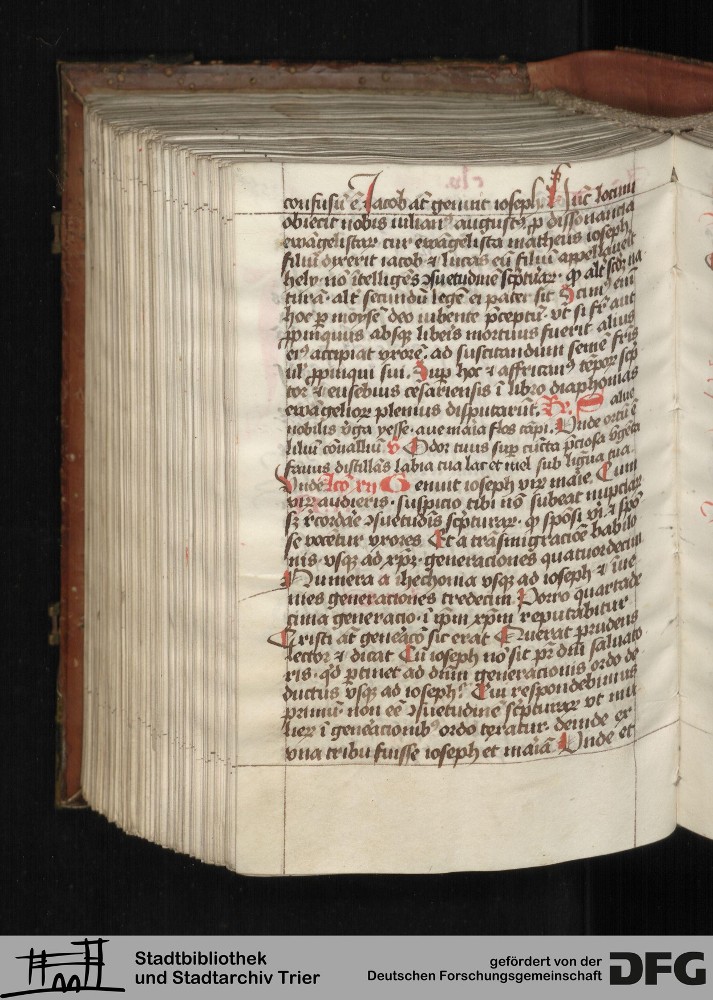 confusū ē. Jacob aūt genuit ioseph. Hūc locum
obiecit nobis iulian9 august9 p dissonancia
ewāgelistaꝝ cur ewāgelista matheus ioseph
filiū dixerit iacob ⁊ lucas eū filiū appellauerit
hely. nō ītelligēs ɔsuetudinē sc̄ptuaꝝ. ꝙ alt̄ scdm na
turā. alt̄ secundū legē ei pater sit Scim9 eni
hoc p moysē deo iubente p̄ceptū. vt si fr̄ aut
ppinquus absqꝫ liberis mortuus fuerit alius
ei9 accipiat vxorē. ad suscitandum semē fr̄is
ul ppinqui sui. Sup hoc ⁊ affrican9 tēpoꝝ scp̄
tor ⁊ eusebius cesariensis ī libro diaphonias
ewāgelioꝝ plenius disputarūt. Rx. Salue
nobilis v̄ga yesse. aue maīa flos cāpi. Unde ortū ē
liliū conalliū v̄ Odor tuus sup cūcta p̄ciosa vgēta
fauus distillās labia tua lac et mel sub ligua tua.
Unde Lc̄o xii Genuit ioseph virꝝ maīe. Cum
virꝝ audieris. suspicio tibi nō subeat nupciaꝝ
sꝫ recordāe ɔsuetudīs sc̄pturaꝝ. ꝙ spōsi viri ⁊ spō
se vocētur vxores Et a trāsmigracīoē babilo
nis. vsqꝫ ad xpm̄. generaciones quatuordecim
Numera a ihechonia vsqꝫ ad ioseph ⁊ īue
nies generaciones tredecim Porro quartade
cima generacio. ī ipm̄ xpm̄ reputabitur
Cristi aūt generac̄o sic erat Querat prudens
lector ⁊ dicat Cū ioseph nō sit pr̄ dn̄i saluato
ris. qd ptinet ad dn̄m generacionis ordo de
ductus vsqꝫ ad ioseph. Cui respondebimus
primū. non eē ɔsuetudinē sc̄pturaꝝ vt mu
lieꝝ ī generacionib9 ordo texatur. deinde ex
vna tribu fuisse ioseph et maīā Unde et
Stadtbibliothek
und Stadtarchiv Trier
gefördert von der
Deutschen Forschungsgemeinschaft
DFG